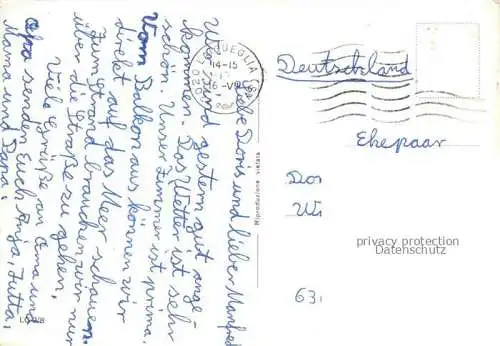 Liebe Doris und lieber Manfred
Wir sind gestern gut ange-
kommen. Das Wetter ist sehr
schön. Unser Zimmer ist prima.
Vom Balkon aus können wir
direkt auf das Meer schauen.
Zum Strand brauchen wir nur
über die Straße zu gehen.
Viele Grüße an Oma und
Opa senden Euch Anja, Jutta,
Mama und Papa.
LAIGUEGLIA
14-15
Deutschland
Ehepaar
Dor
Wi
63
Riproduzione vietata
privacy protection
Datenschutz